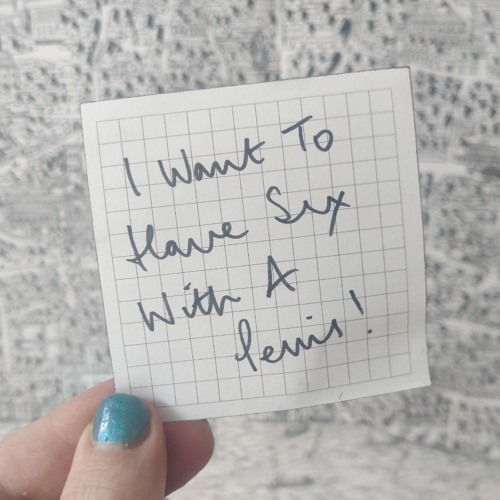 I Want To
Have Sex
With A
Penis!